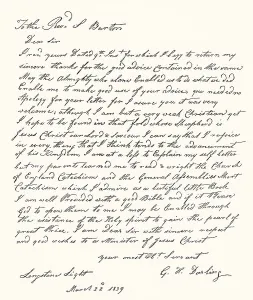 To the Revd. S. Barton
Dear Sir
I had yours Dated 9th Inst for which I beg to return my
sincere thanks for the good advice contained in the same
May the Almighty who alone Enabled us to do what we did
Enable me to make good use of your advice, you need no
Apology for your letter for I assure you it was very
welcome, although I am but a very weak Christian yet
I hope to be found in that fold whose Shepherd is
Jesus Christ our Lord & Saviour I can say that I rejoice
in every thing that I think tends to the advancement
of his Kingdom I am at a loss to Explain my self better
but my parents learned me to read & wright the Church
of England Catechism and the General Assemblies short
Catechism which I admire as a beutiful little Book
I am well Provided with a good Bible and if it Please
God to spare them to me I may be Enabled through
the assistance of the Holy spirit to gain the pearl of
great price, I am Dear Sir with sincere respect
and good wishes to a Minister of Jesus Christ
your most obt Servant
Longstone Light G. H. Darling
March 22d 1839